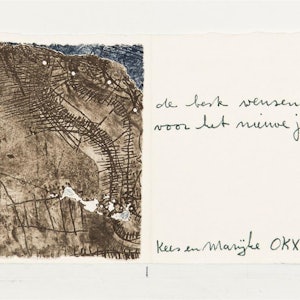 de best wensen
voor het nieuwe j
Kees en Marijke OKX